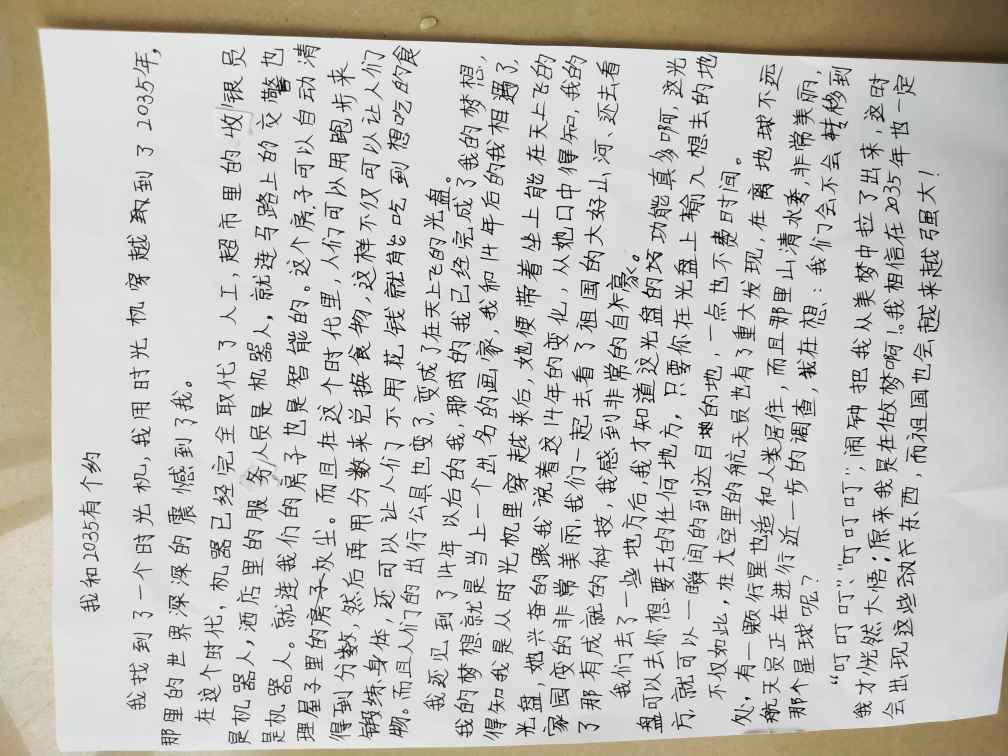 我和2035有个约
我找到了一个时光机,我用时光机穿越到了2035年,
那里的世界深深的震憾到了我。
在这个时代,机器已经完全取代了人工,超市里的收银员
是机器人,酒店里的服务人员是机器人,就连马路上的交警也
是机器人。就连我们的房子也是智能的。这个房子可以自动清
理屋子里的灰尘。而且在这个时代里,人们可以用跑步来
得到分数,然后再用分数来兑换食物,这样不仅可以让人们
锻练身体,还可以让人们了不用花钱就肯能吃到想吃的食
物。而且人们的出行公具也变了,变成了在天上飞的光盘。
我还见到了14年以后的我,那时的我已经完成了我的梦想,
我的梦想就是当上一个出名的画家,我和14年后的我相遇了,
得知我是从时光机里穿越来后,她便带着坐上能在天上飞的
光盘,她兴奋的跟我说着这14年的变化,从她口中得知,我的
家园变的非常美丽,我们一起去看了祖国的大好山河、还去看
了那有成就的科技,我感到非常的自豪。
我们去了一些地方后,我才知道这光盘的功能真多啊,这光
盘可以去你想要去的任何地方,只要你在光盘上输入想去的地
方,就可以一瞬间的到达目的地,一点也不费时间。
不仅如此,在太空里的航天员也有了重大发现,在离地球不远
处,有一颗行星也适和人类居住,而且那里山清水秀,非常美丽,
航天员正在进行近一步的调查,我在想:我们会不会转移到
那个星球呢?
“叮叮叮”“叮叮叮”,闹钟把我从美梦中拉了出来,这时
我才恍然大悟;原来我是在做梦啊!我相信在2035年也一定
会出现这些动东西,而祖国也会越来越强大!